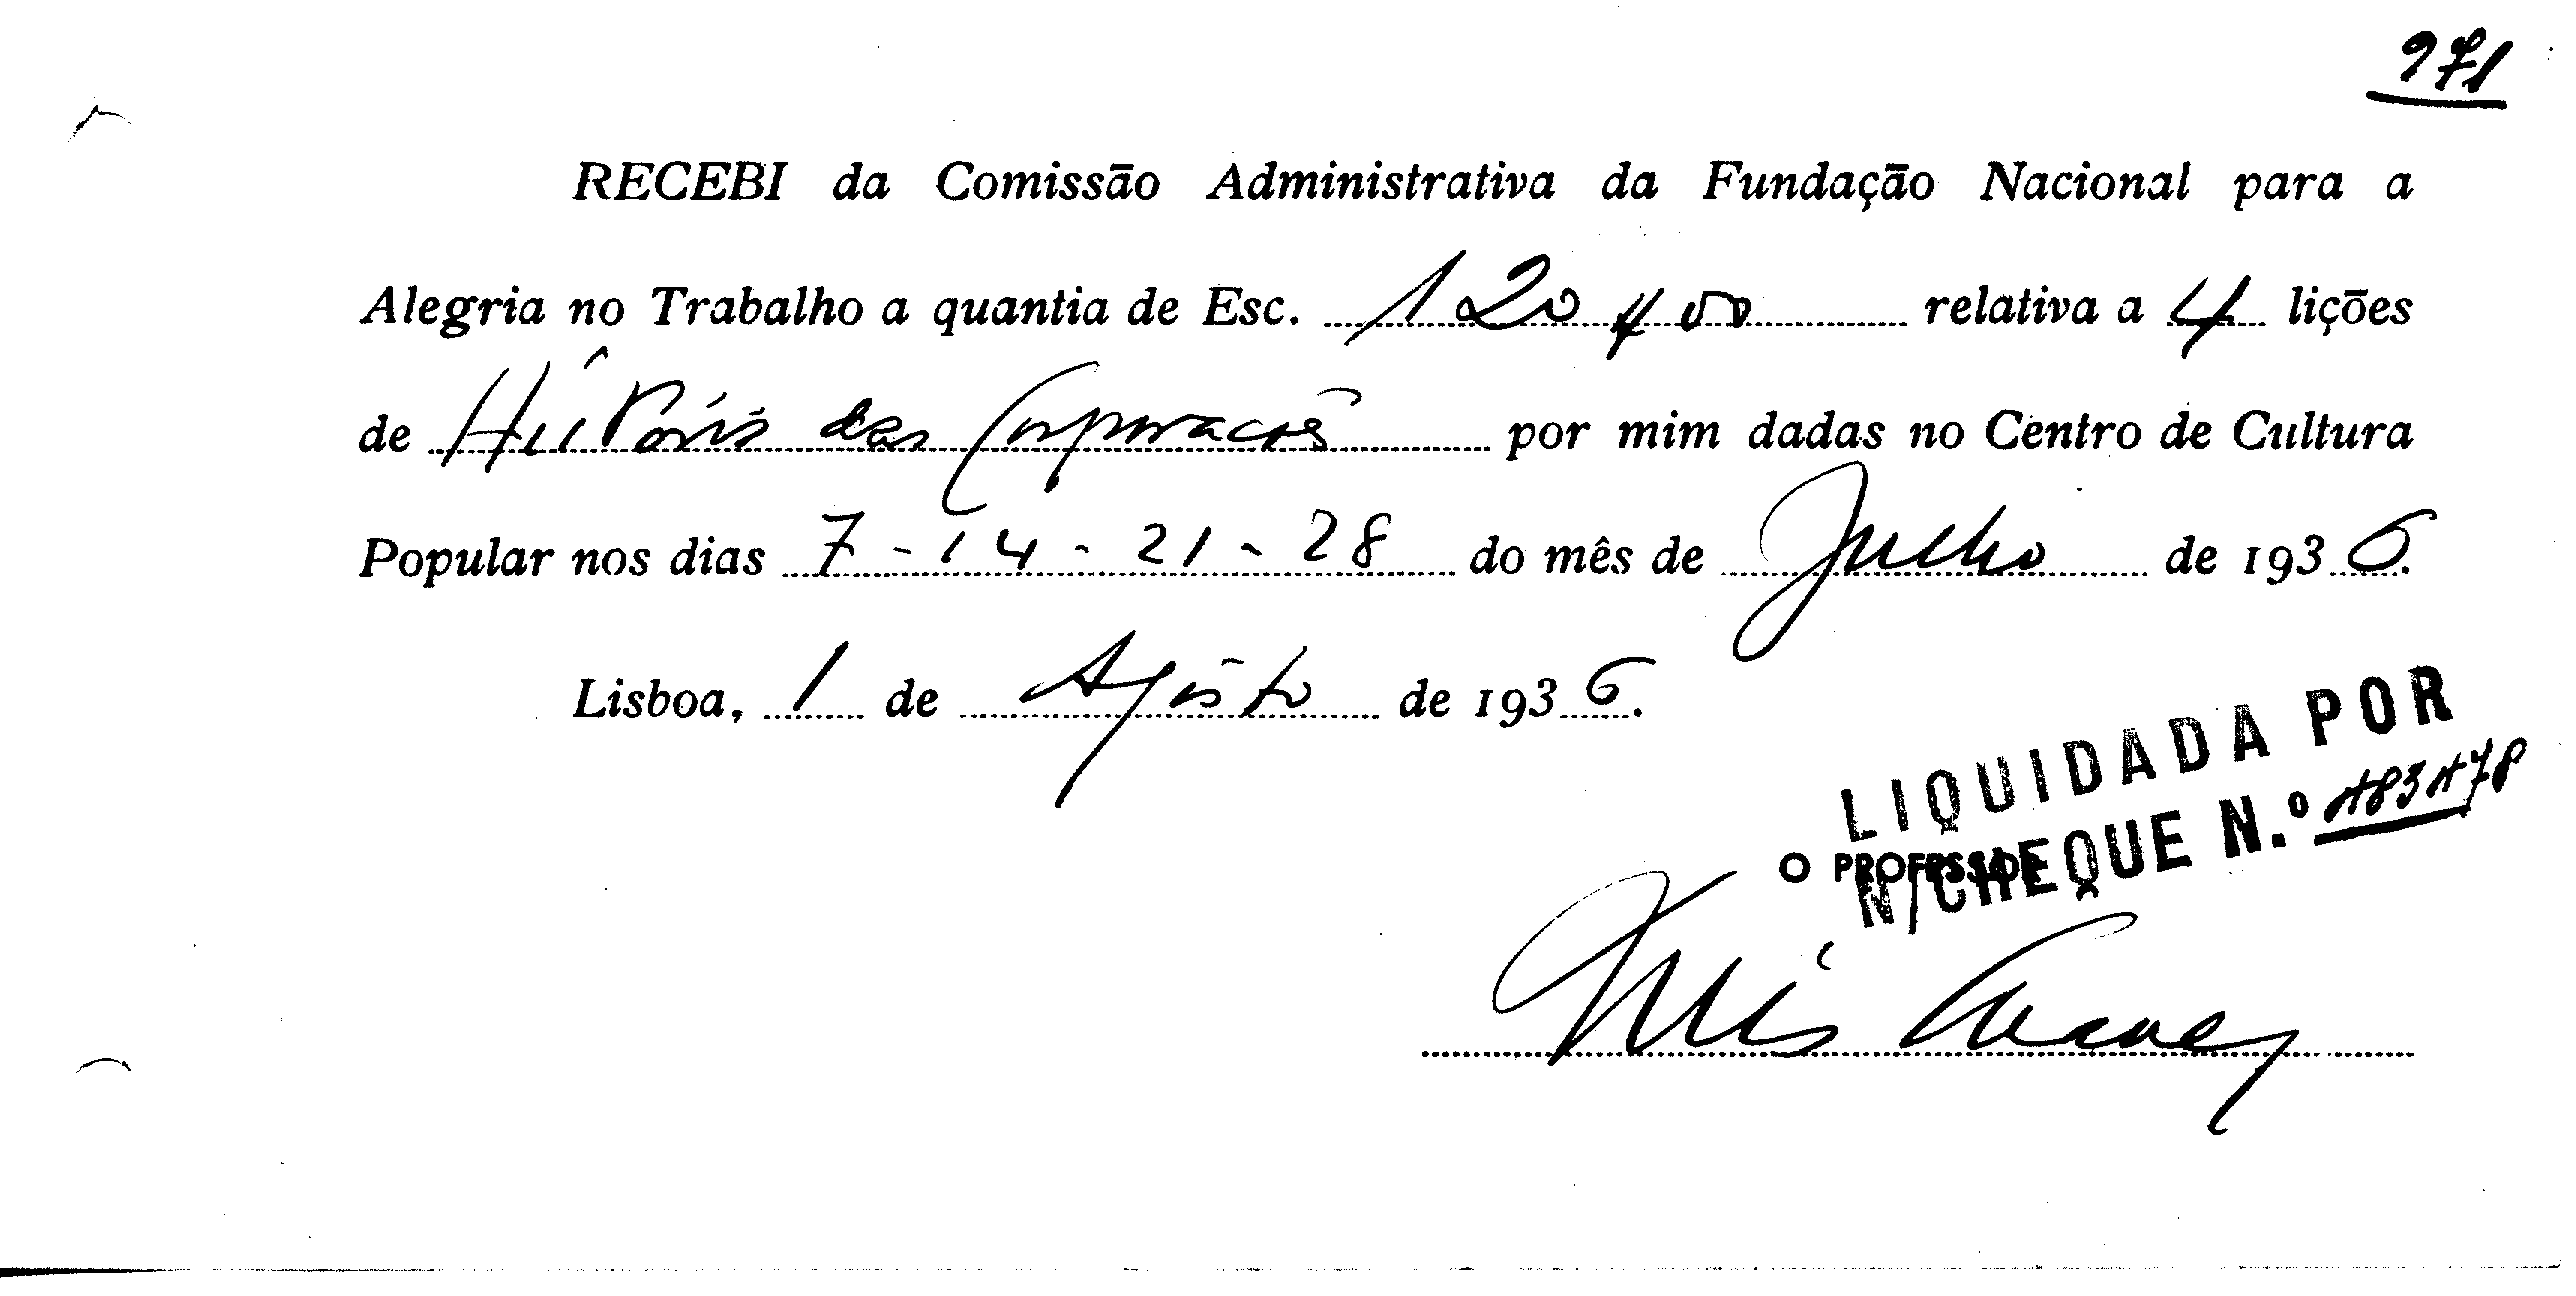 971
RECEBI da Comissão Administrativa da Fundação Nacional para a
Alegria no Trabalho a quantia de Esc. 120$00 relativa a 4 lições
de História das Corporações por mim dadas no Centro de Cultura
Popular nos dias 7 - 14 - 21 - 28 do mês de Julho de 1936.
Lisboa, 1 de Agôsto de 1936.
LIQUIDADA POR
N/CHEQUE N.º
O PROFESSOR